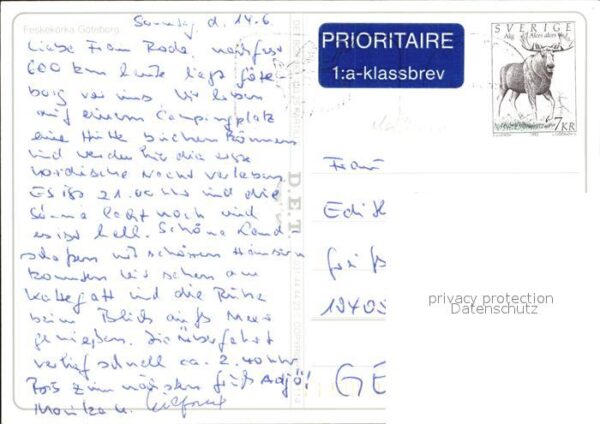 Feskekörka Göteborg
Sonntag d. 14.6.
Liebe Frau Rode, nach fast
600 km heute liegt Göte-
borg vor uns. Wir haben
auf einem Campingplatz
eine Hütte buchen können
und werden hier die erste
nordische Nacht verleben.
Es ist 21.00 Uhr und die
Sonne lacht noch und
es ist hell. Schöne Land
schaften mit schönen Häusern
konnten wir sehen am
Kattegatt und die Ruhe
beim Blick aufs Meer
genießen. Die Überfahrt
verlief schnell ca. 2.40 Uhr
Bis zum nächsten Gruß Adjö!
Monika u.
D.E.T
PRIORITAIRE
1:a-klassbrev
SVERIGE
Älg Alces alces
7 KR
Frau
Edith
12405
GE
privacy protection
Datenschutz